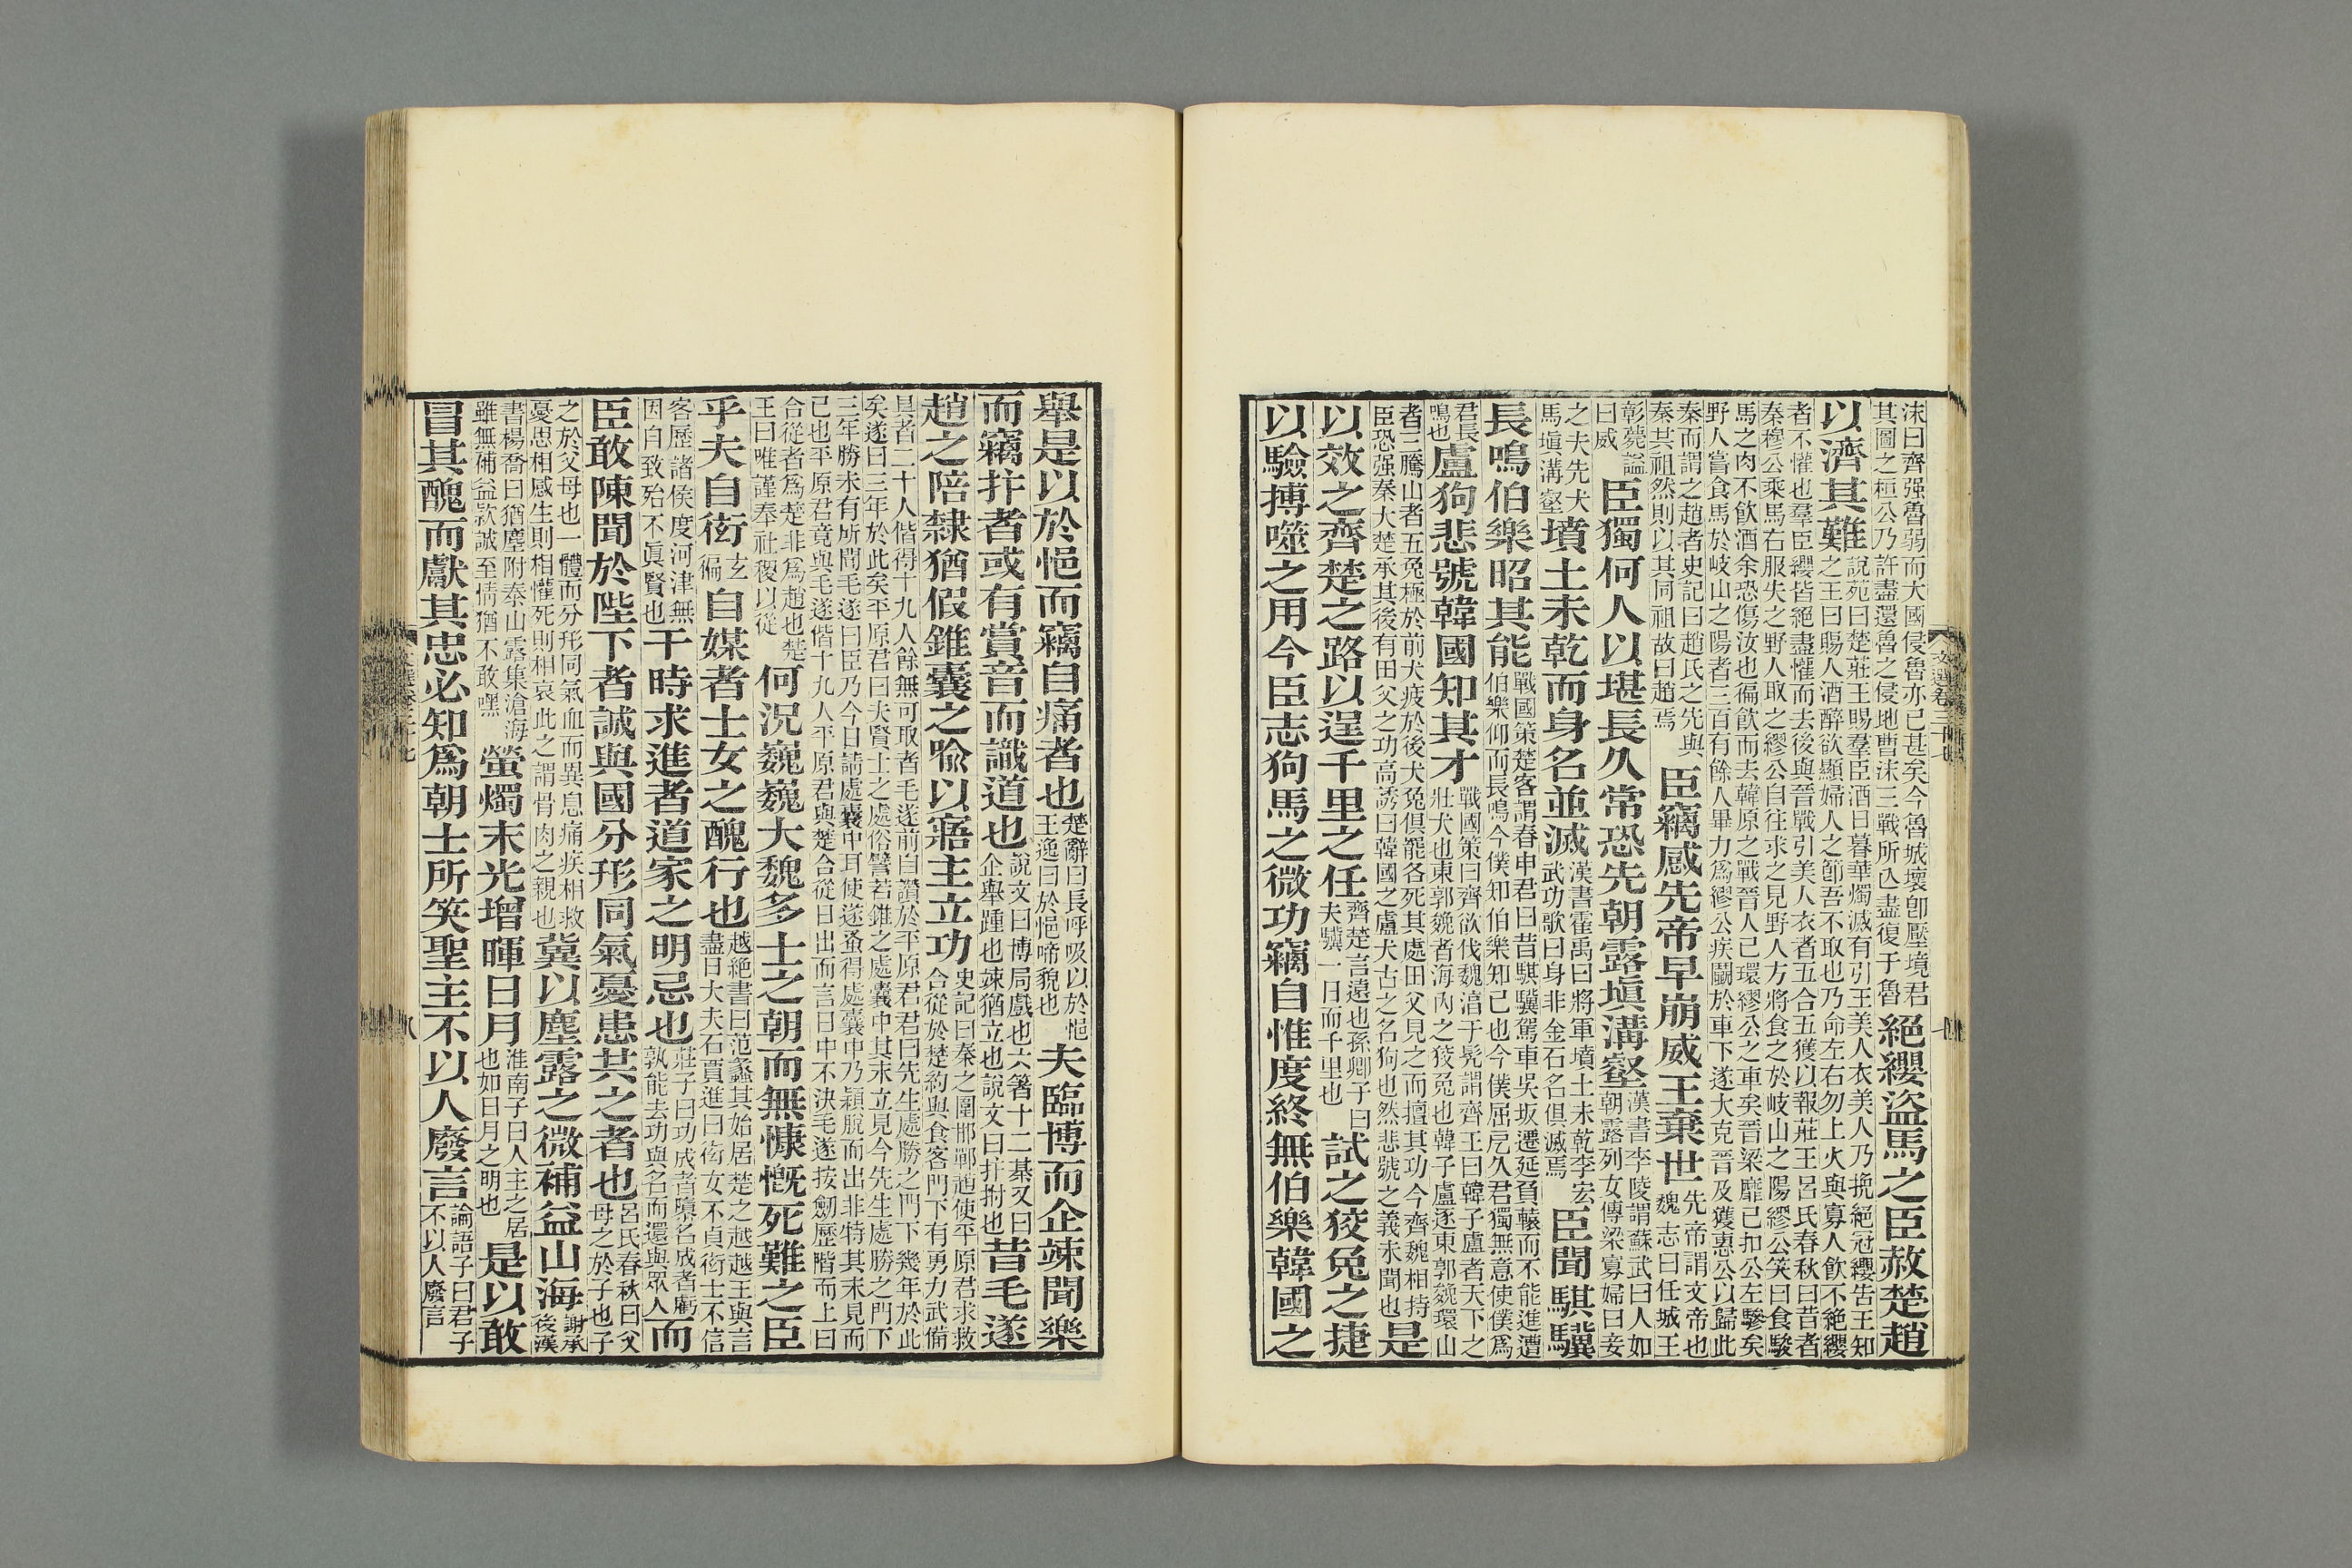 沫曰齊强魯弱而大國侵魯亦已甚矣今魯城壞卽壓境君
其圖之桓公乃許盡還魯之侵地曹沫三戰所亡盡復于魯
絕纓盜馬之臣赦楚趙
以濟其難
說苑曰楚莊王賜羣臣酒日暮華燭滅有引王美人衣美人乃挽絕冠纓告王知
之王曰賜人酒醉欲顯婦人之節吾不取也乃命左右勿上火與寡人飲不絕纓
者不懽也羣臣纓皆絕盡懽而去後與晉戰引美人衣者五合五獲以報莊王呂氏春秋曰昔者
秦穆公乘馬右服失之野人取之繆公自往求之見野人方將食之於岐山之陽繆公笑曰食駿
馬之肉不飲酒余恐傷汝也徧飲而去韓原之戰晉人已環繆公之車矣晉梁靡已扣公左驂矣
野人嘗食馬於岐山之陽者三百有餘人畢力爲繆公疾鬭於車下遂大克晉及獲惠公以歸此
秦而謂之趙者史記曰趙氏之先與
秦共祖然則以其同祖故曰趙焉
臣竊感先帝早崩威王棄世
先帝謂文帝也
魏志曰任城王
彰薨諡
曰威
臣獨何人以堪長久常恐先朝露塡溝壑
漢書李陵謂蘇武曰人如
朝露列女傳梁寡婦曰妾
之夫先犬
馬塡溝壑
墳土未乾而身名並滅
漢書霍禹曰將軍墳土未乾李宏
武功歌曰身非金石名俱滅焉
臣聞騏驥
長鳴伯樂昭其能
戰國策楚客謂春申君曰昔騏驥駕車吳坂遷延負轅而不能進遭
伯樂仰而長鳴今僕知伯樂知己也今僕屈厄久君獨無意使僕爲
君長
鳴也
盧狗悲號韓國知其才
戰國策曰齊欲伐魏淳于髠謂齊王曰韓子盧者天下之
壯犬也東郭㕙者海內之狡兔也韓子盧逐東郭㕙環山
者三騰山者五兔極於前犬疲於後犬兔俱罷各死其處田父見之而擅其功今齊魏相持
臣恐强秦大楚承其後有田父之功高誘曰韓國之盧犬古之名狗也然悲號之義未聞也
是
以效之齊楚之路以逞千里之任
齊楚言遠也孫卿子曰
夫驥一日而千里也
試之狡兔之捷
以驗搏噬之用今臣志狗馬之微功竊自惟度終無伯樂韓國之
舉是以於悒而竊自痛者也
楚辭曰長呼吸以於悒
王逸曰於悒啼貌也
夫臨博而企竦聞樂
而竊抃者或有賞音而識道也
說文曰博局戲也六箸十二棊又曰
企舉踵也竦猶立也說文曰抃拊也
昔毛遂
趙之陪隸猶假錐囊之喩以寤主立功
史記曰秦之圍邯鄲趙使平原君求救
合從於楚約與食客門下有勇力武備
具者二十人偕得十九人餘無可取者毛遂前自讚於平原君君曰先生處勝之門下幾年於此
矣遂曰三年於此矣平原君曰夫賢士之處俗譬若錐之處囊中其末立見今先生處勝之門下
三年勝未有所聞毛遂曰臣乃今日請處囊中耳使遂蚤得處囊中乃穎脫而出非特其末見而
已也平原君竟與毛遂偕十九人平原君與楚合從日出而言日中不決毛遂按劒歷階而上曰
合從者爲楚非爲趙也楚
王曰唯謹奉社稷以從
何況巍巍大魏多士之朝而無慷慨死難之臣
乎夫自衒
玄
徧
自媒者士女之醜行也
越絕書曰范蠡其始居楚之越越王與言
盡日大夫石賈進曰衒女不貞衒士不信
客歷諸侯度河津無
因自致殆不眞賢也
干時求進者道家之明忌也
莊子曰功成者隳名成者虧
孰能去功與名而還與眾人
而
臣敢陳聞於陛下者誠與國分形同氣憂患共之者也
呂氏春秋曰父
母之於子也子
之於父母也一體而分形同氣血而異息痛疾相救
憂思相感生則相懽死則相哀此之謂骨肉之親也
冀以塵露之微補益山海
謝承
後漢
書楊喬曰猶塵附泰山露集滄海
雖無補益款誠至情猶不敢嘿
螢燭末光增暉日月
淮南子曰人主之居
也如日月之明也
是以敢
冒其醜而獻其忠必知爲朝士所笑聖主不以人廢言
論語子曰君子
不以人廢言